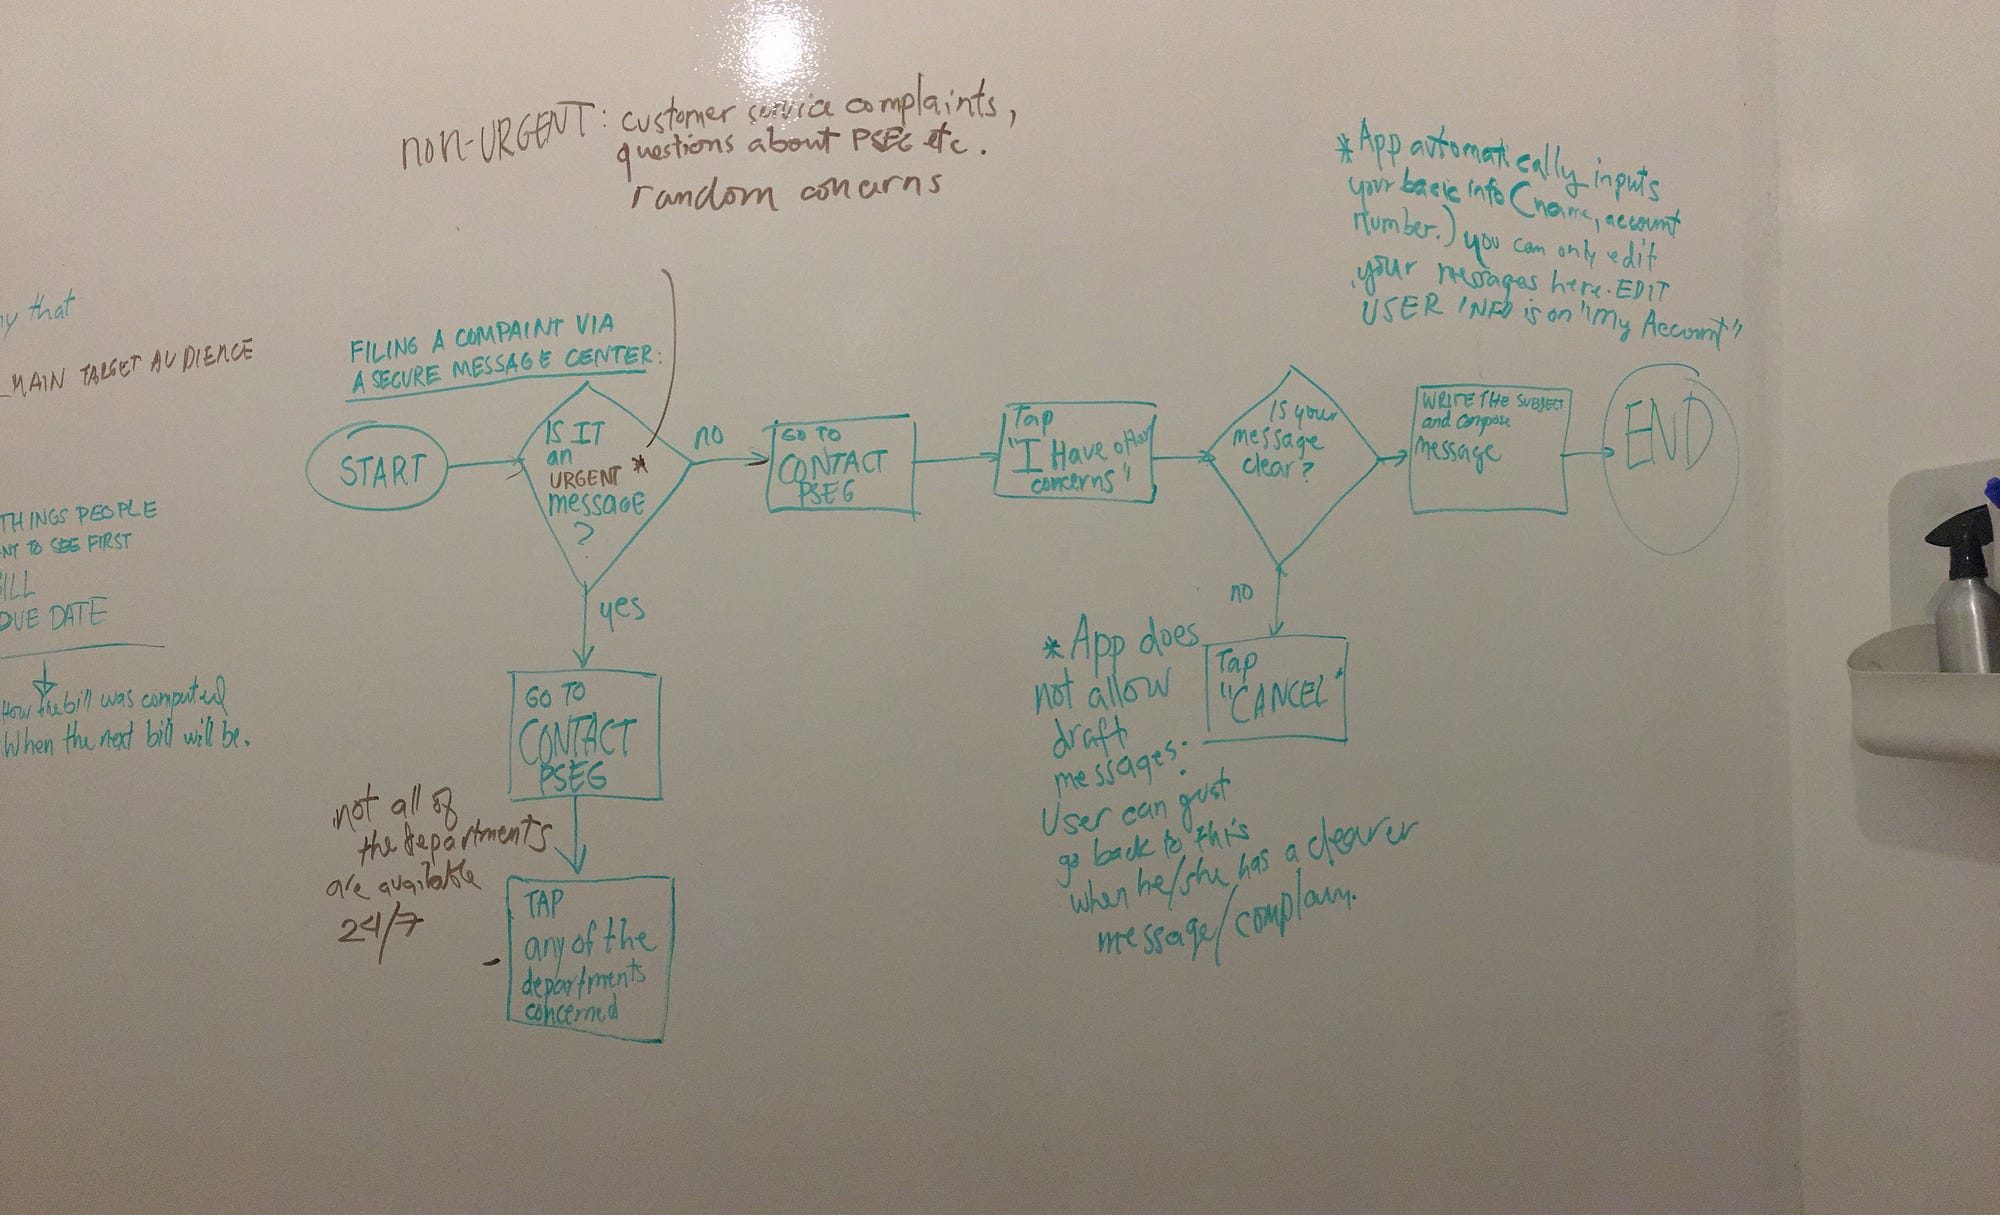 non-URGENT: customer service complaints,
questions about PSEG etc.
random concerns
*App automatically inputs
your basic info (name, account
number.) you can only edit
your messages here. EDIT
USER INFO is on "My Account"
that
MAIN TARGET AUDIENCE
THINGS PEOPLE
TO SEE FIRST
DUE DATE
How the bill was computed
When the next bill will be.
FILING A COMPAINT VIA
A SECURE MESSAGE CENTER:
START
IS IT
an
URGENT *
message
?
no
GO TO
CONTACT
PSEG
Tap
"I Have other
concerns"
Is your
message
clear?
WRITE THE SUBJECT
and compose
message
END
yes
GO TO
CONTACT
PSEG
not all of
the departments
are available
24/7
TAP
any of the
departments
concerned
no
Tap
"CANCEL"
*App does
not allow
draft
messages.
User can just
go back to this
when he/she has a clearer
message/complain.